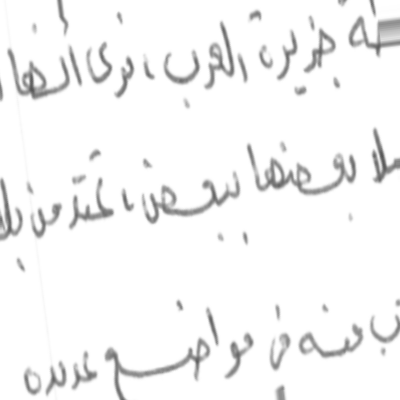 جزيرة العرب، نرى أنها
بعضها ببعض، تمتد من بلا
منه في مواضع عديده